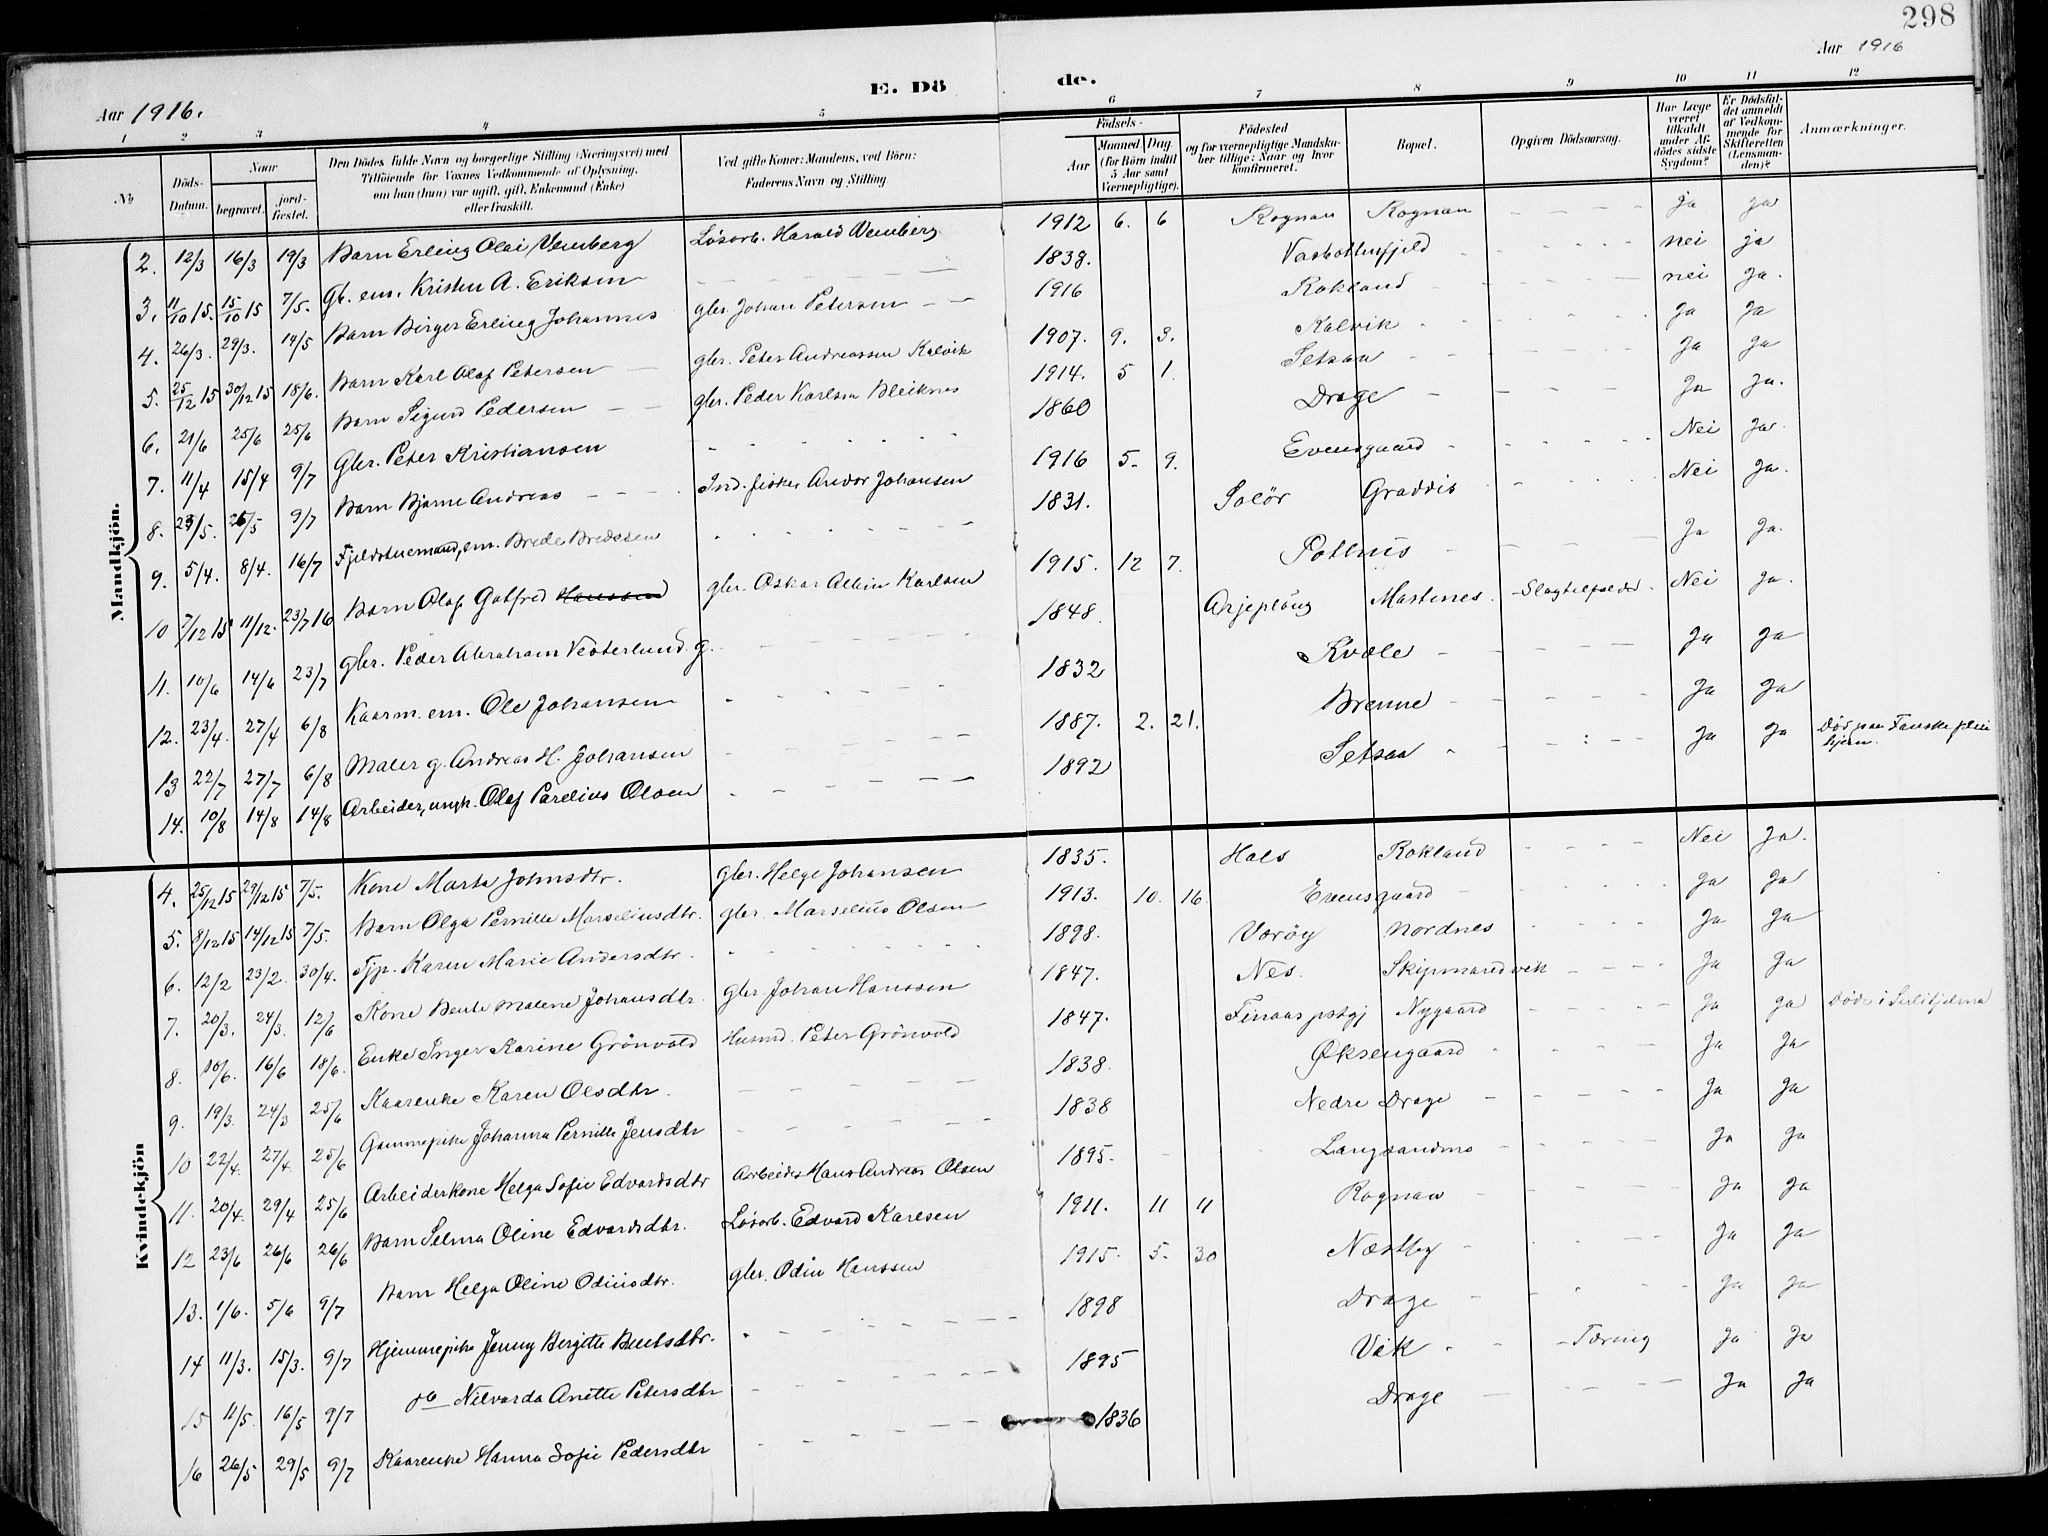 298
Aar 1916
Aar 1916.
E. Dö de.
1 2 3 4 5 6 7 8 9 10 11 12
No
Döds-Datum.
Naar
begravet.
jord-fæstet.
Den Dödes fulde Navn og borgerlige Stilling (Næringsvei) med
Tilföiende for Voxnes Vedkommende af Oplysning,
om han (hun) var ugift, gift, Enkemand (Enke)
eller fraskilt.
Ved gifte Koner: Mandens, ved Börn:
Faderens Navn og Stilling
Födsels-
Aar
Maaned. Dag.
(for Börn indtil
5 Aar samt
Værnepligtige).
Födested
og for værnepligtige Mandska-
ber tillige: Naar og hvor
konfirmeret.
Bopæl.
Opgiven Dödsaarsag.
Har Læge
været
tilkaldt
under Af-
dödes sidste
Sygdom?
Er Dödsfal-
det anmeldt
af Vedkom-
mende for
Skifteretten
(Lensman-
den)?
Anmærkninger.
Mandkjön.
2. 12/3 16/3 19/3 Barn Erling Olai Vemberg Løsarb. Harald Vemberg 1912 6. 6 Rognan Rognan ja ja
3. 11/10 15. 15/10 15 7/5. Gb. em. Kristen A. Eriksen 1838. nei ja
4. 26/3. 29/3. 14/5 Barn Birger Erling Johannes gbr. Johan Petersen 1916 Rokland nei ja.
5. 25/12 15 30/12 15 18/6. Barn Karl Olaf Petersen gbr. Peter Andreassen Kalvik 1907. 9. 3. Kalvik ja ja
6. 21/6 25/6 25/6 Barn Sigurd Pedersen gbr. Peder Karlsen Bleiknes 1914. 5 1. Setsaa ja ja
7. 11/4 15/4 9/7 Gbr. Peter Kristiansen 1860 Drage Ja Ja.
8. 23/5. 26/5 9/7 Barn Bjarne Andreas Ind. fisker Andor Johansen 1916 5. 9. Evensgaard Nei Ja.
9. 5/4. 8/4. 16/7 Fjeldstuemand, em. Brede Bredesen 1831. Solör Graddis Nei Ja.
10 7/12 15 11/12. 23/7 16 Barn Olaf Gotfred Hanssen gbr. Oskar Albin Karlsen 1915. 12 7. Pothus Ja Ja.
11. 10/6 14/6 23/7 gbr. Peder Abraham Vesterlund. g. 1848. Arjeplöug Mastenes. Slagtilfælde. Nei Ja.
12. 23/4. 27/4 6/8 Kaarm. em. Ole Johansen 1832 Kvæle Ja Ja
13 22/7 27/7 6/8 Maler g. Andreas H. Johansen 1887. 2. 21. Brenne Ja Ja
14. 10/8 14/8 14/8 Arbeider, ungk. Olaf Parelius Olsen 1892 Setsaa Ja Ja Död paa Fauske plei
hjem.
Kvindekjön
4. 25/12 15 29/12 15 7/5. Kone Marta Johnsdtr. gbr. Helge Johansen 1835. Hals Rokland Nei Ja.
5. 8/12 15 14/12 15 7/5. Barn Olga Pernille Marseliusdtr. gbr. Marselius Olsen 1913. 10. 16. Evensgaard Ja Ja
6. 12/2 23/2. 30/4. Tjp. Karen Marie Andersdtr. 1898. Værøy Nordnes Ja Ja
7. 20/3. 24/3. 12/6 Kone Malene Johansdtr. gbr. Johan Hanssen 1847. Nes. Skipmandvik Ja Ja
8. 10/6. 16/6 18/6. Enke Inger Karine Grönvold Husmd. Peter Grönvold 1847. Nygaard Ja Ja Döde i Sulitjelma
9. 19/3. 24/3 25/6 Kaarenke Karen Olsdtr. 1838. Øksengaard Ja Ja
10 22/4. 27/4. 25/6 Gammepike Johanna Pernille Jensdtr 1838 Nedre Drage Ja Ja
11. 20/4. 29/4 25/6 Arbeiderkone Helga Sofie Edvardsdtr Arbeider Hans Andreas Olsen 1895. Langsandmo Ja Ja
12 23/6 26/6 26/6 Barn Selma Oline Edvardsdtr. Løsarb. Edvard Karlsen 1911. 11 11 Rognan Ja Ja
13. 1/6. 5/6 9/7 Barn Helga Oline Odinsdtr. gbr. Odin Hanssen 1915. 5. 30 Næstby Ja Ja
14 11/3. 15/3. 9/7 Hjemmepike Jenny Bergitte Bentsdtr. 1898 Drage Ja Ja
15 11/5. 16/5 9/7 do Nilvarda Anette Petersdtr 1895 Vik Tæring Ja Ja
16 26/5 29/5 9/7 Kaarenke Hanna Sofie Pedersdtr 1836 Drage Ja Ja